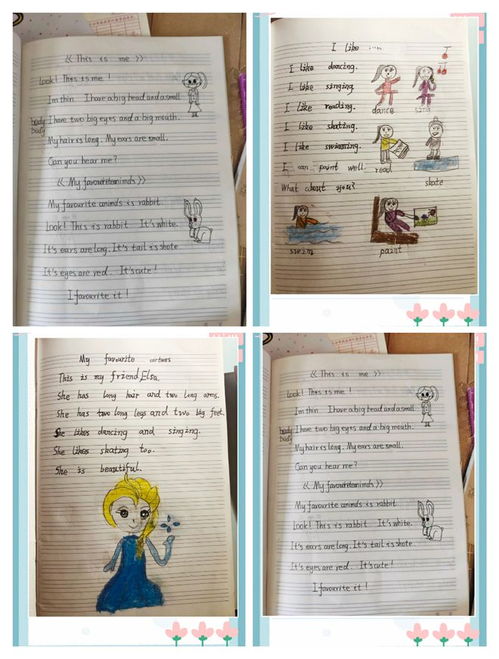 << This is me >>
Look! This is me!
I'm thin. I have a big head and a small
body I have two big eyes and a big mouth.
body
My hair is long. My ears are small.
Can you hear me?
<< My favouriteaninds >>
My favourite aninds is rabbit
Look! This is rabbit It's white.
It's ears are long. It's tail is shote
It's eyes are red. It's cute!
I favourite it!
I like ....
I like dancing.
I like singing.
I like reading.
I like skating.
I like swimming.
I can paint well.
What about you?
dance sing
read
skate
swim
paint
My favourite
This is my friend Elsa.
She has long hair and two long arms.
She has two long legs and two big feet.
She likes dancing and singing.
She likes skating too.
She is beautiful.
<< This is me >>
Look! This is me!
I'm thin. I have a big head and a small
body I have two big eyes and a big mouth.
body
My hair is long. My ears are small.
Can you hear me?
<< My favouriteaninds >>
My favourite aninds is rabbit
Look! This is rabbit It's white.
It's ears are long. It's tail is shote
It's eyes are red. It's cute!
I favourite it!